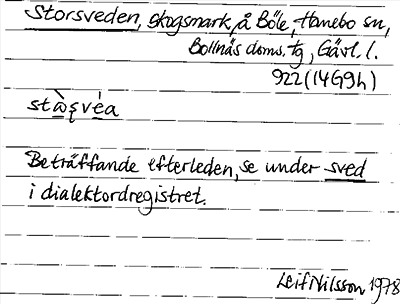 Storsveden, skogsmark, å Böle, Hanebo sn,
Bollnäs doms. tg, Gävl. l.
922 (14G9h)
stà̱ʂvé̱a
Beträffande efterleden, se under sved
i dialektordregistret.
Leif Nilsson 1978